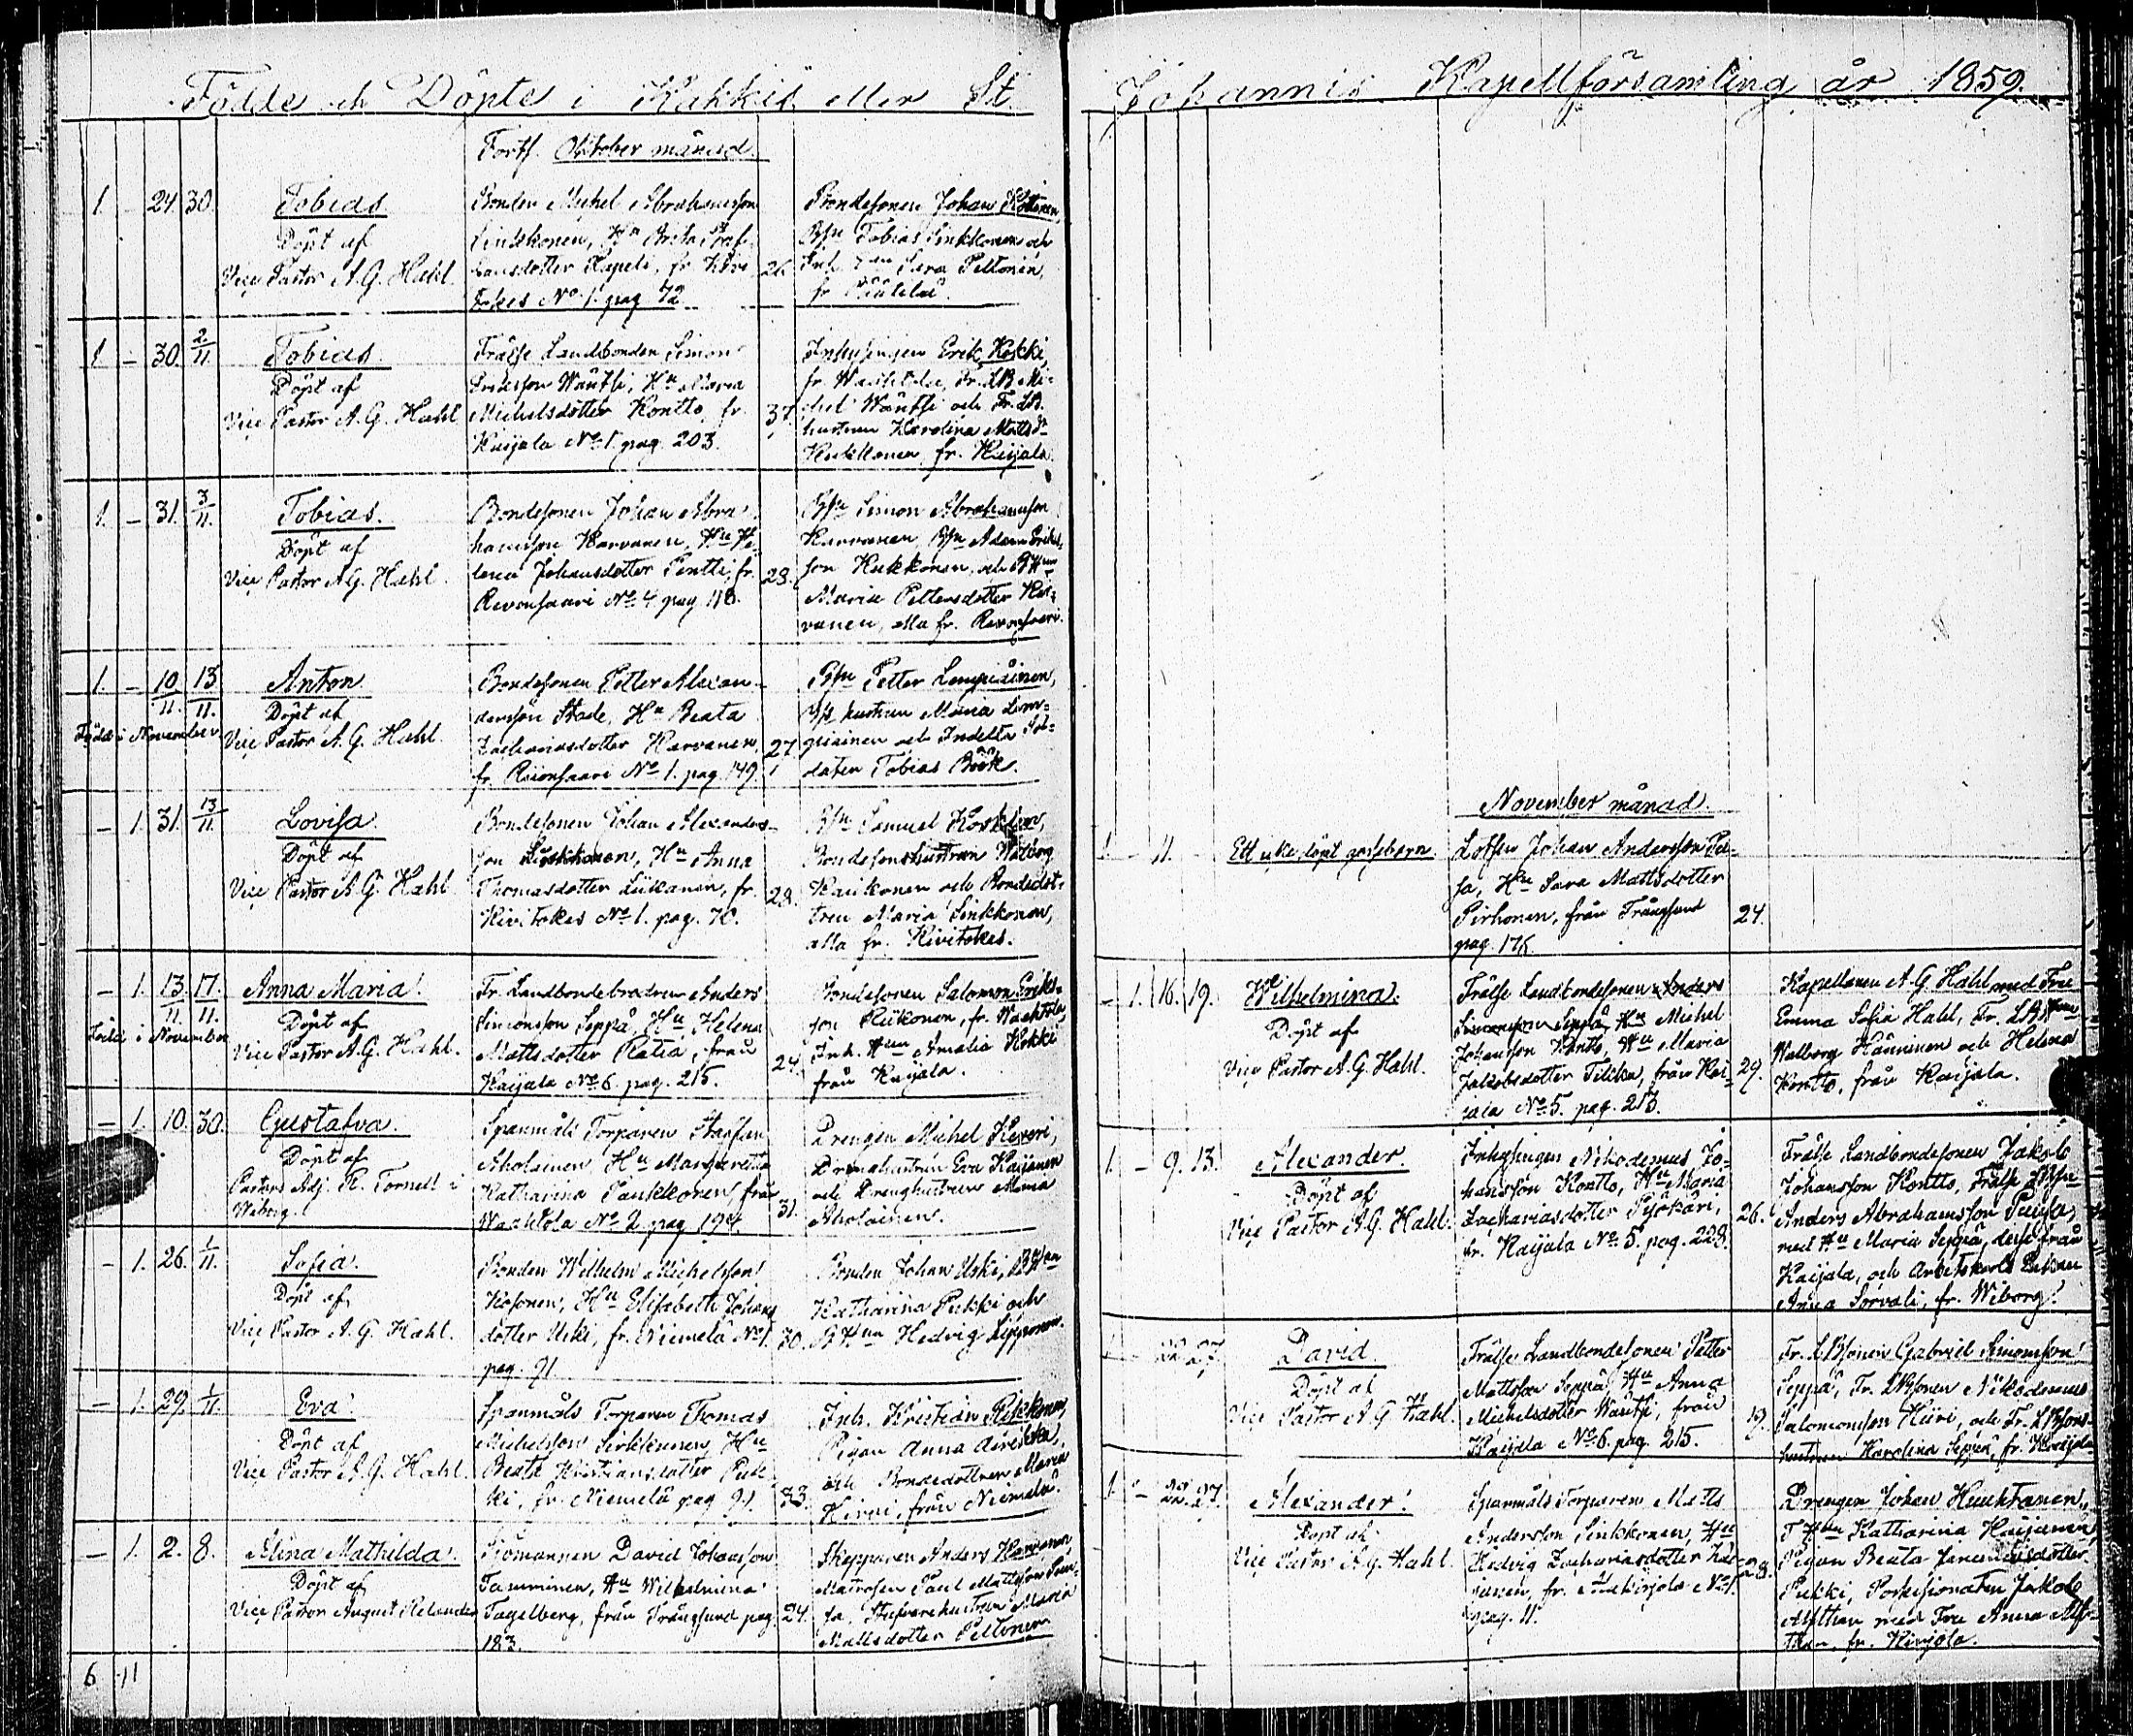 Födde och Döpte i Kakkis eller St.
Fortf. Oktober månad.
1. - 24. 30.
Tobias
Döpt af
Vice Pastor A. G. Hahl.
Bonden Michel Abrahamsson
Sinkkonen, Hu Brita Staf-
fansdotter Kapeli, fr. Kivi-
tokes No 1. pag 72.
26.
Bondesonen Johan
Bsn Tobias Sinkkonen och
Inh. Sara Peltonen,
fr.
1. - 30. 2/11.
Tobias.
Döpt af
Vice Pastor A. G. Hahl
Frälse Landbonden Simon
Wäntsi, Hu Maria
Michelsdotter Kontto, fr.
Kaijala No 1. pag. 203.
37.
Inhysingen Erik Kokki,
fr. Waahtola, Fr. LB Mi-
chel Wäntsi och Fr. LB.
hustrun Karolina Matts dr
Kukkonen, fr. Kaijala.
1. - 31. 3/11.
Tobias.
Döpt af
Vice Pastor A. G. Hahl.
Bondesonen Johan Abra-
hamsson Karvanen, Hu He-
lena Johansdotter Pentti, fr.
Revonsaari No 4 pag. 118.
28.
Bsn Simon Abrahamsson
Karvanen, Bsn Adam Eriks-
son Kukkonen, och BHun
Maria Pettersdotter Kar-
vanen, alla fr. Revonsaari.
1. - 10/11. 13/11.
Född i November
Anton
Döpt af
Vice Pastor A. G. Hahl.
Bondesonen Petter Alexan-
dersson Stade, Hu Beata
Zachariasdotter Karvanen,
fr. Revonsaari No 1. pag. 149.
27.
Bsn Petter Lempiäinen,
hustrun Maria Lem-
piäinen och Indelta Sol-
daten Tobias Böök.
- 1. 31. 13/11.
Lovisa.
Döpt af
Vice Pastor A. G. Hahl
Bondesonen Johan Alexanders-
son Sinkkonen, Hu Anna
Thomasdotter Liikanen, fr.
Kivitokes No 1. pag. 70.
28.
Bsn Samuel
Bondesonshustrun Walborg
Kaukonen och Bondedot-
tren Maria Sinkkonen,
alla fr. Kivitokes.
- 1. 13/11. 17/11.
Född i November
Anna Maria.
Döpt af
Vice Pastor A. G. Hahl.
Fr. Landbondebrodren Anders
Simonsson Seppä, Hu Helena
Mattsdotter Ratia, från
Kaijala No 6. pag. 215.
24.
Bondesonen Salomon Eriks-
son Riikonen, fr. Waahtola,
Inh. Hun Amalia Kokki
från Kaijala.
- 1. 10. 30.
Gustafva.
Döpt af
Pastors Adj. K. Fornell i
Wiborg.
Spanmåls Torparen Staffan
Aholainen, Hu Margaretha
Katharina Paukkonen, från
Waahtola No 2. pag. 194.
31.
Drengen Michel Keveri,
Drenghustrun Eva Kaijanen
och Drenghustrun Maria
Aholainen.
- 1. 26. 1/11.
Sofia.
Döpt af
Vice Pastor A. G. Hahl.
Bonden Wilhelm Michelsson
Kosonen, Hu Elisabeth Johans
dotter Uski, fr. Niemelä No 1.
pag. 91
30.
Bonden Johan Uski,
Katharina Pukki och
BHun Hedvig Lipponen.
- 1. 29. 1/11.
Eva.
Döpt af
Vice Pastor A. G. Hahl.
Spanmåls Torparen Thomas
Michelsson Sirkkunen, Hu
Beata Kristiansdotter Puk-
ki, fr. Niemelä pag 91.
33.
Inh. Kristian
Pigan Anna
och Bondedottren Maria
Hirvi, från Niemelä.
- 1. 2. 8.
Alina Mathilda.
Döpt af
Vice Pastor August Relander
Sjömannen David Johansson
Tamminen, Hu Wilhelmina
Fagelberg, från Trångsund pag.
183.
24.
Skepparen Anders
Matrosen Paul Mattsson
Maria
Mattsdotter Peltonen
6 11
Johannis Kapellförsamling år 1859.
November månad.
1. - 11.
Ett icke döpt gossebarn.
Lotsen Johan Andersson
Hu Sara Mattsdotter
Pirhonen, från Trångsund
pag. 176.
24.
- 1. 16. 19.
Wilhelmina.
Döpt af
Vice Pastor A. G. Hahl.
Frälse Landbondesonen Anders
Simonsson Seppä, Hu Michel
Johansson Kontto, Hu Maria
Jakobsdotter Tilkka, från Kai-
jala No 5. pag. 213.
29.
Kapellanen A. G. Hahl med Fru
Emma Sofia Hahl, Fr. LBHun
Walborg Hänninen och Helena
Kontto, från Kaijala.
1. - 9. 13.
Alexander.
Döpt af
Vice Pastor A. G. Hahl.
Inhysingen Nikodemus Jo-
hansson Kontto, Hu Maria
Zachariasdotter Pijökäri,
fr. Kaijala No 5. pag. 228.
26.
Frälse Landbondesonen Jakob
Johansson Kontto, Frälse LBsn
Anders Abrahamsson
med Hu Maria Seppä, desse från
Kaijala, och Arbetskarls Enkan
Anna Sorvali, fr. Wiborg.
1. - 22. 27.
David.
Döpt af
Vice Pastor A G Hahl.
Frälse Landbondesonen Petter
Mattsson Seppä, Hu Anna
Michelsdotter Wäntsi, från
Kaijala No 6. pag. 215.
19.
Fr. LBsonen Gabriel Simonsson
Seppä, Fr. LBsonen Nikodemus
Salomonsson Kiiri, och Fr. LBsons-
hustrun Karolina Seppä, fr. Kaijala
1. - 27.
Alexander.
Döpt af
Vice Pastor A. G. Hahl.
Spanmåls Torparen Matts
Andersson Sinkkonen, Hu
Hedvig Zachariasdotter
fr. No 1.
pag. 11.
Drengen Johan Huuhtanen,
T. Hun Katharina Kaijanen,
Pigan Beata
Pukki, Jakob
Alfthan med Fru Anna Alf-
than, fr. Kirjola.